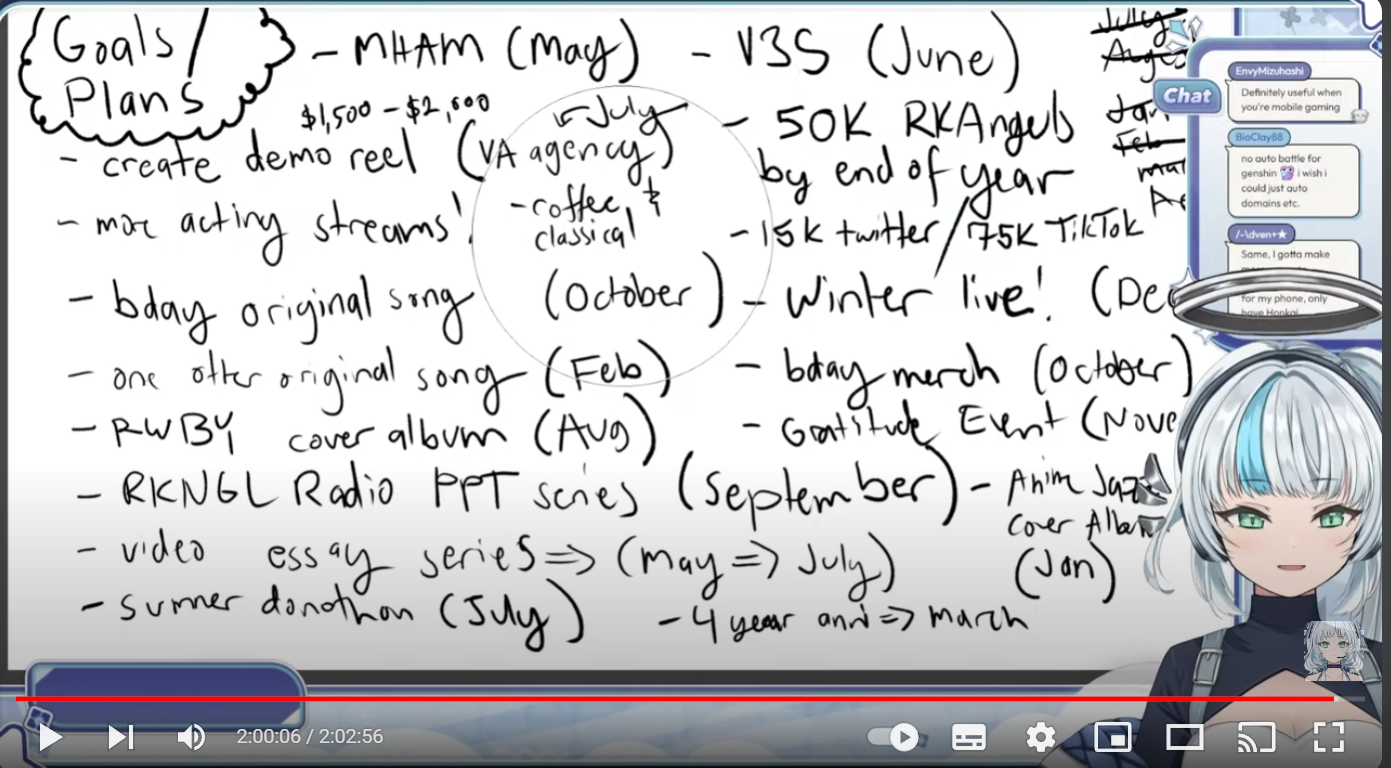 Goals/
Plans
- MHAM (May)
- V3S (June)
$1,500 - $2,000
- create demo reel (VA agency)
← July
- more acting streams!
- coffee &
classical
- bday original song (October)
- one other original song (Feb)
- RWBY cover album (Aug)
- RKNGL Radio PPT series (September)
- video essay series => (May => July)
- summer donothon (July)
- 50K RKAngels
by end of year
- 15K twitter / 75K TikTok
- Winter live! (Dec
- bday merch (October)
- Gratitude Event (Nove
- Anime Jazz
Cover Album
(Jan)
- 4 year anni => march
July
Chat
EnvyMizuhashi
Definitely useful when
you're mobile gaming
BioClay88
no auto battle for
genshin i wish i
could just auto
domains etc.
/-\dven+★
Same, I gotta make
for my phone, only
have Honkai
2:00:06 / 2:02:56